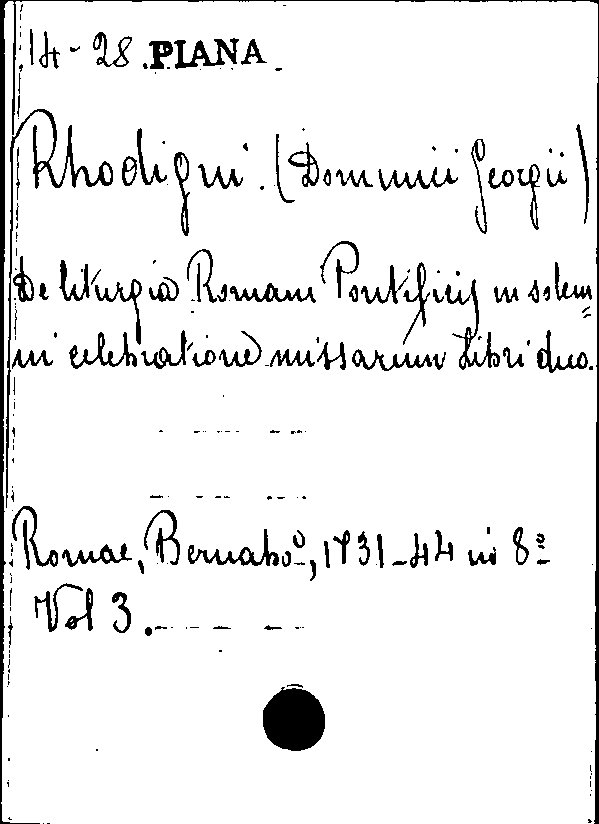 14-28 PIANA
Rhodigni. (Dominici Georgii)
De liturgia Romani Pontificis in solem=
ni celebratione missarum Libri duo.
Romae, Bernabo, 1731-44 in 8º
Vol 3.